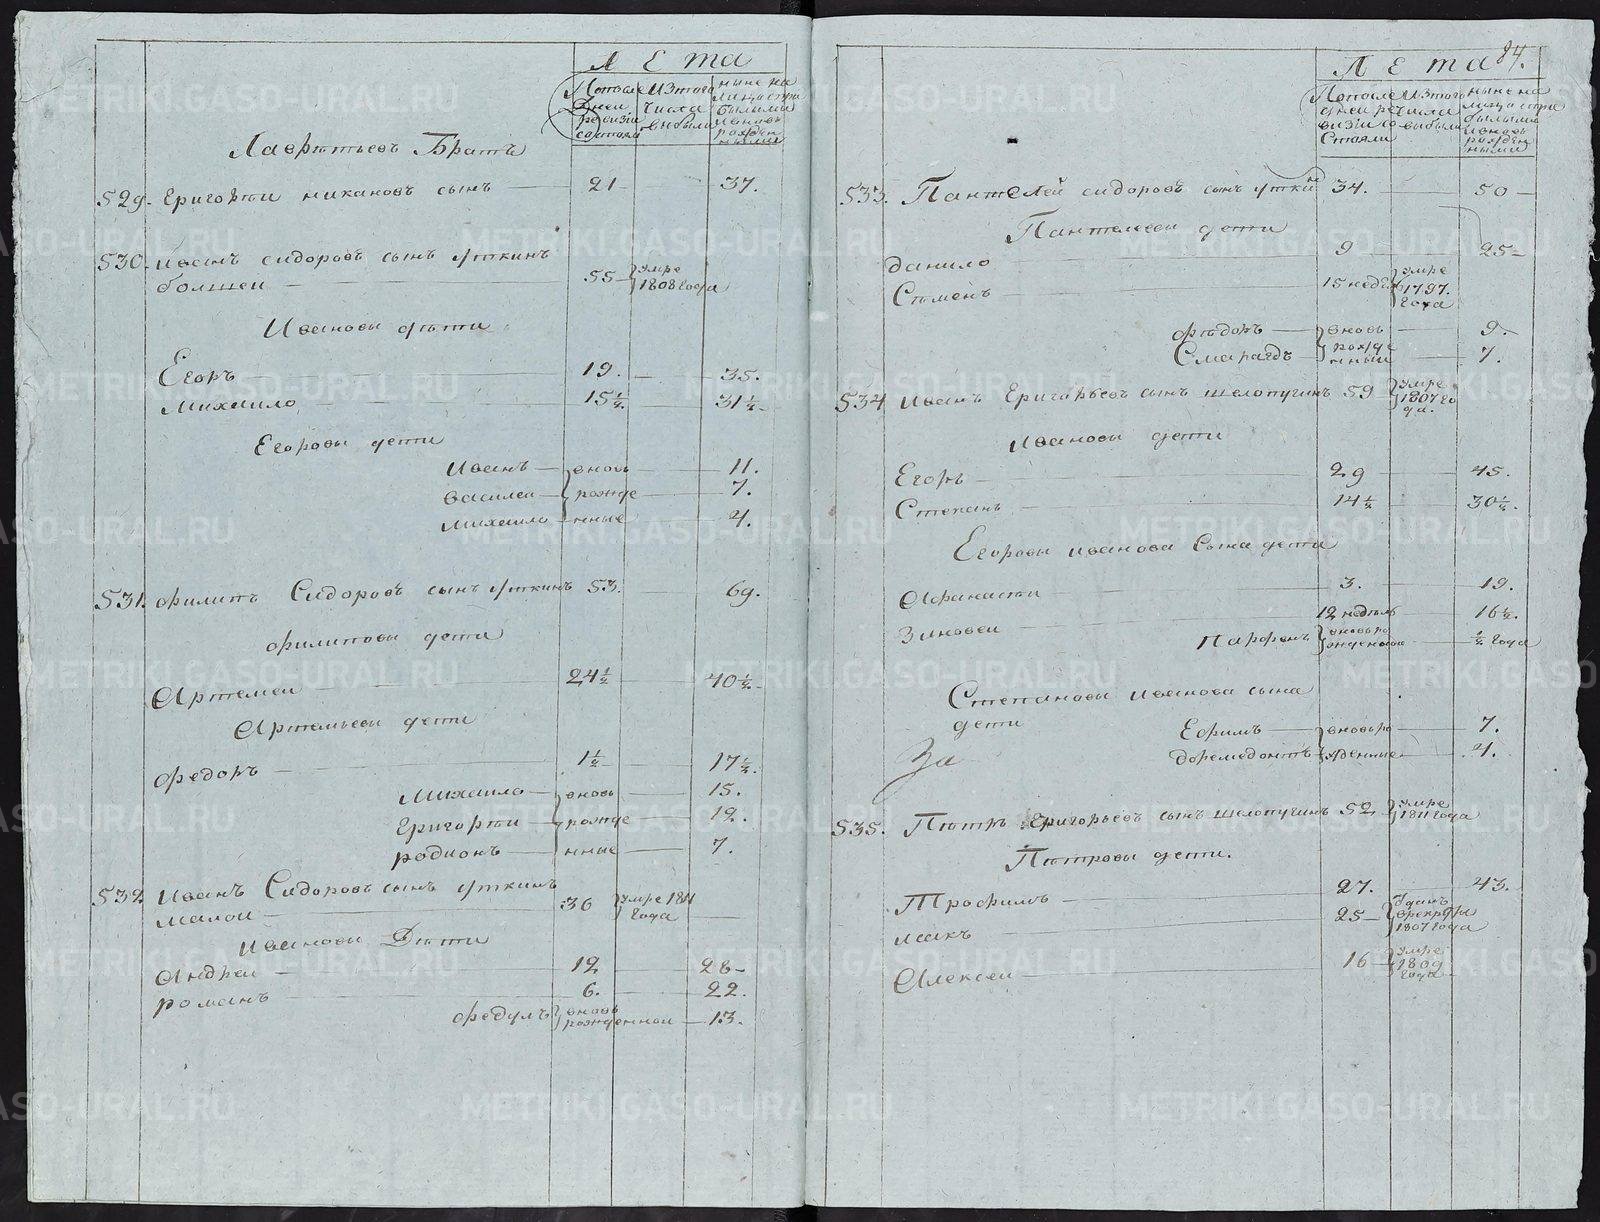 Лета
Попосле Изтого ныне на
дней числа лицо с при
ревизии выбыли былыми
состояли и вновь
рожден
ными
Лаврѣтьевъ Братъ
529. Григорѣи никановъ сынъ 21 37.
530. Иванъ сидоровъ сынъ уткинъ
болшеи 55 умре
1808 года
Ивановы дѣти
Егоръ 19. 35.
Михаило 15½ 31½
Егоровы дети
Иванъ вновь 11.
василеи рожде 7.
михаило нные 4.
531. Филипъ Сидоровъ сынъ уткинъ 53. 69.
Филиповы дети
Артемеи 24½ 40½
Артемьевы дети
Федоръ 1½ 17½
Михаило вновь 15.
Григорѣи рожде 12.
родионъ нные 7.
532. Иванъ Сидоровъ сынъ уткинъ
малои 36 умре 1811
года
Ивановы Дѣти
Андреи 12 28
романъ 6. 22.
Федулъ вновь
рожденнои 13.
84.
Лета
Попосле Изтого ныне на
дней ре числа лицо с при
визии со выбыли былыми
стояли и вновь
рожден
ными
533. Пантелей сидоровъ сынъ уткинъ 34. 50
Пантелеевы дети
данило 9 25
Сѣменъ 15 недѣ умре
1797.
года
Фѣдоръ вновь 9.
Смарагдъ рожде
нные 7.
534 Иванъ Григорьевъ сынъ шелопугинъ 59 умре
1807 го
да.
Ивановы дети
Егоръ 29 45.
Степанъ 14½ 30½.
Егоровы иванова Сына дети
Афанасѣи 3. 19.
Зиновеи 12 недѣль 16½.
Парфенъ вновьро
жденнои ½ года
Степановы Иванова сына
дети
Ефимъ вновьро 7.
доремедонтъ жденные 4.
За
535. Пѣтръ Григорьевъ сынъ шелопугинъ 52 умре
1811 года
Пѣтровы дети.
Трофимъ 27. 43.
исакъ 25 зданъ
врекруты
1807 года
Алексеи 16 умре
1809
года